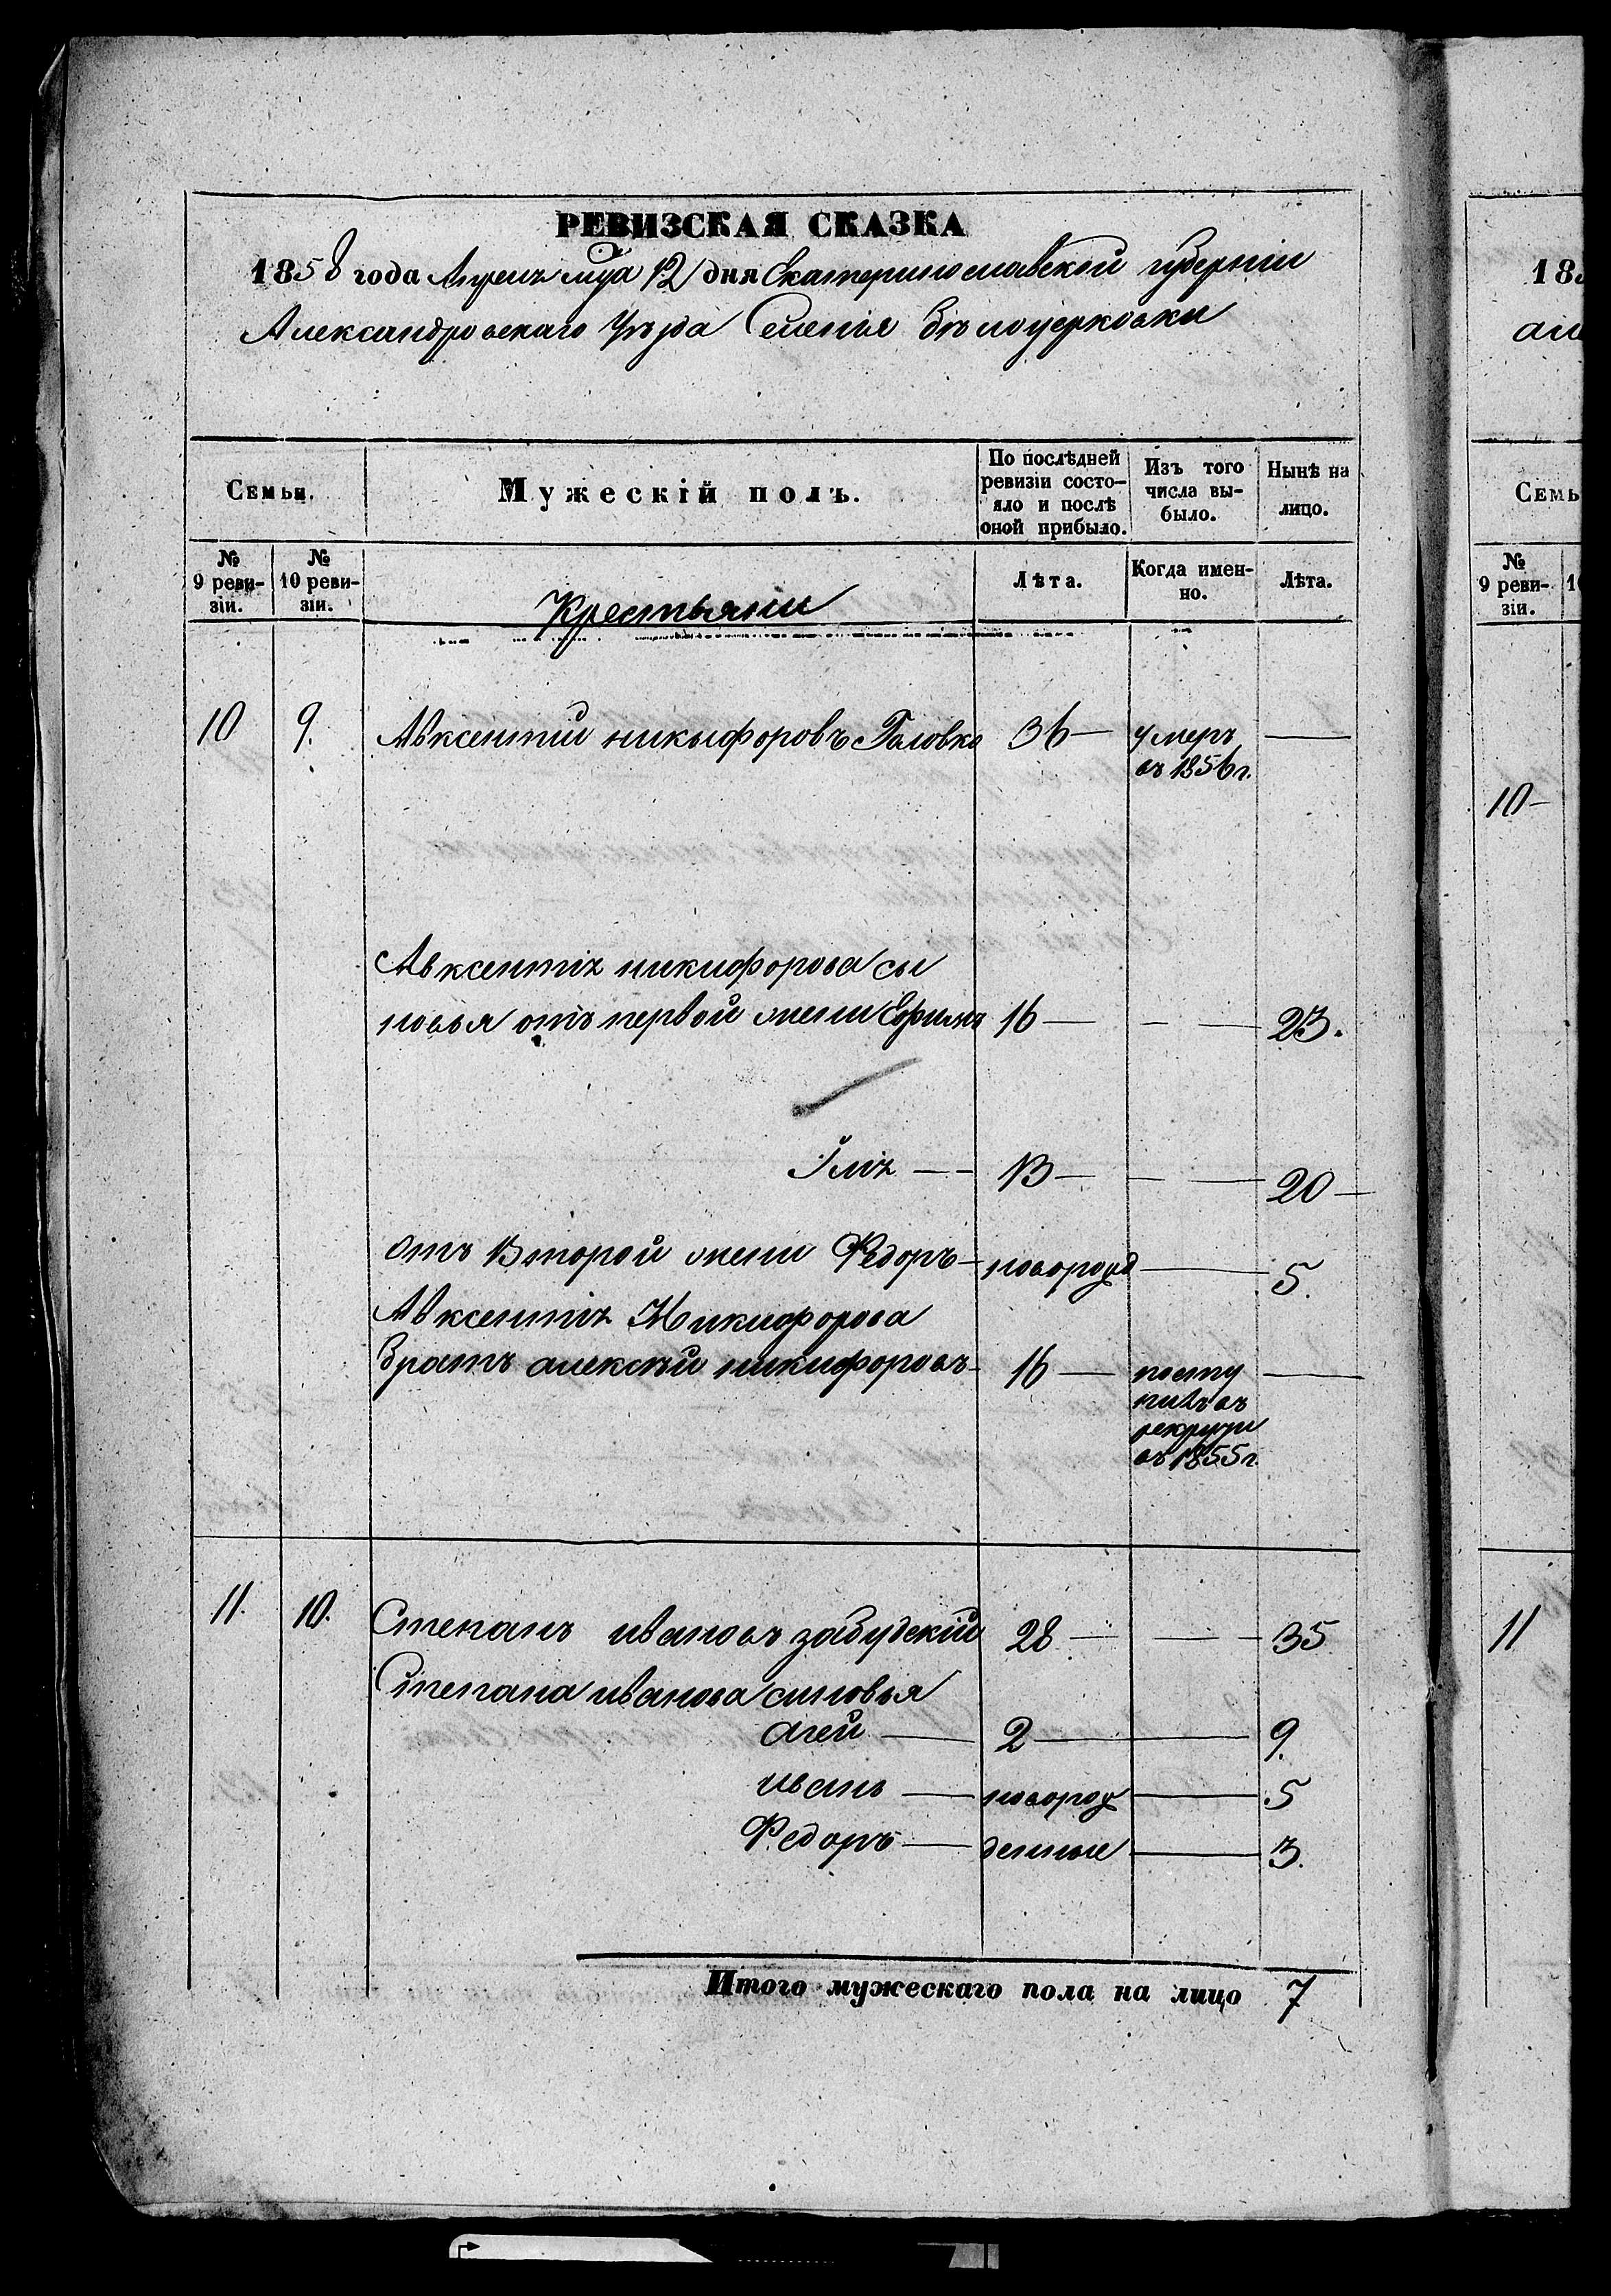 РЕВИЗСКАЯ СКАЗКА
1858 года Апреля мца 12 дня Екатеринославской губерніи
Александровскаго Уѣзда Селенія Бѣлоцерковки
Семьи.
Мужескій полъ.
По послѣдней ревизіи состо-
яло и послѣ оной прибыло.
Изъ того числа вы-
было.
Нынѣ на лицо.
№ 9 реви-
зіи.
№ 10 реви-
зіи.
Крестьяни
Лѣта.
Когда имен-
но.
Лѣта.
10 9. Авксентій никыфоровъ Головко 36 — умеръ —
въ 1856 г.
Авксентія никифорова сы
новья отъ первой жени Ефимъ 16 — — — 23.
Ілія — — 13 — — — 20 —
отъ Второй жени Федоръ — новорожд — 5.
Авксентія Никифорова
братъ алексѣй никифоровъ — 16 — посту —
пилъ въ
рекруты
въ 1855 г.
11. 10. Степанъ ивановъ забудскій 28 — — — 35
Степана иванова синовья
агей — 2 — — 9.
иванъ — новорож — 5
Федоръ — денные — 3.
Итого мужескаго пола на лицо 7
18
але
Семь
№
9 реви-
зіи.
10 —
11